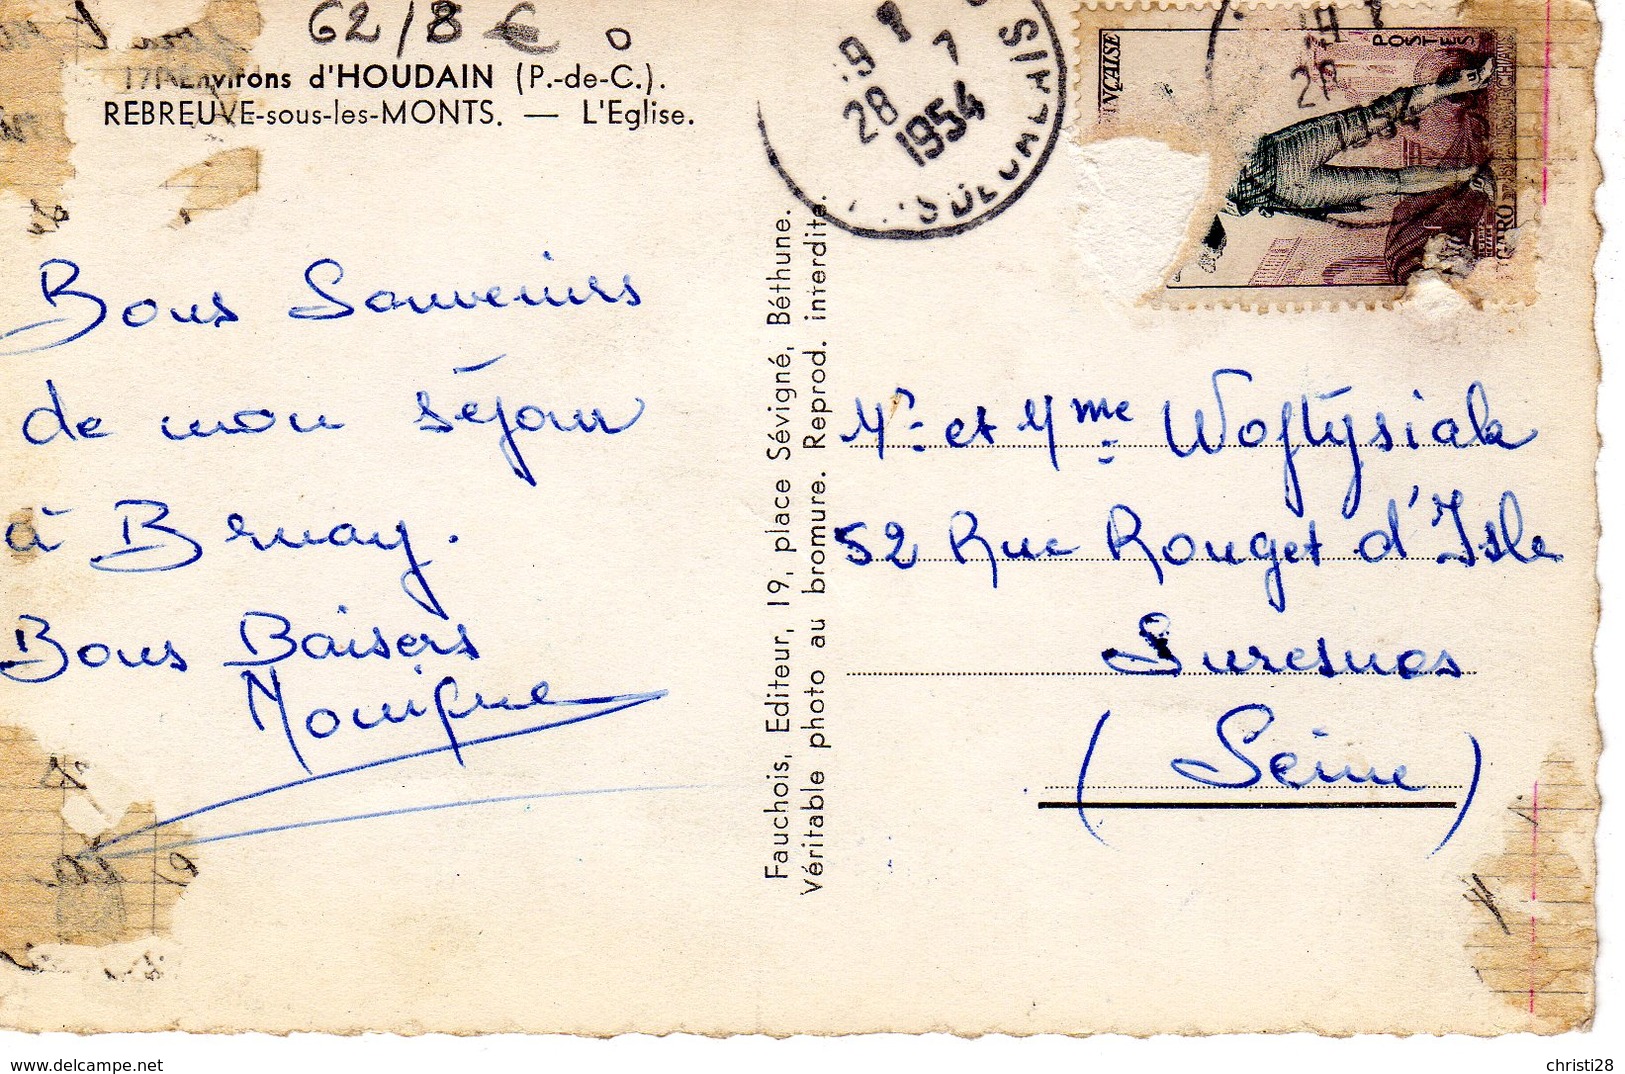 62/8€
Environs d'HOUDAIN (P.-de-C.).
REBREUVE-sous-les-MONTS. — L'Eglise.
28
7
1954
PAS DE CALAIS
28
1954
POSTES
Bons Souvenirs
de mon séjour
à Bruay.
Bons Baisers
Monique
Fauchois, Editeur, 19, place Sévigné, Béthune.
Véritable photo au bromure. Reprod. interdite.
Mr et Mme Woftysiak
52 Rue Rouget d'Isle
Suresnes
(Seine)
www.delcampe.net
christi28